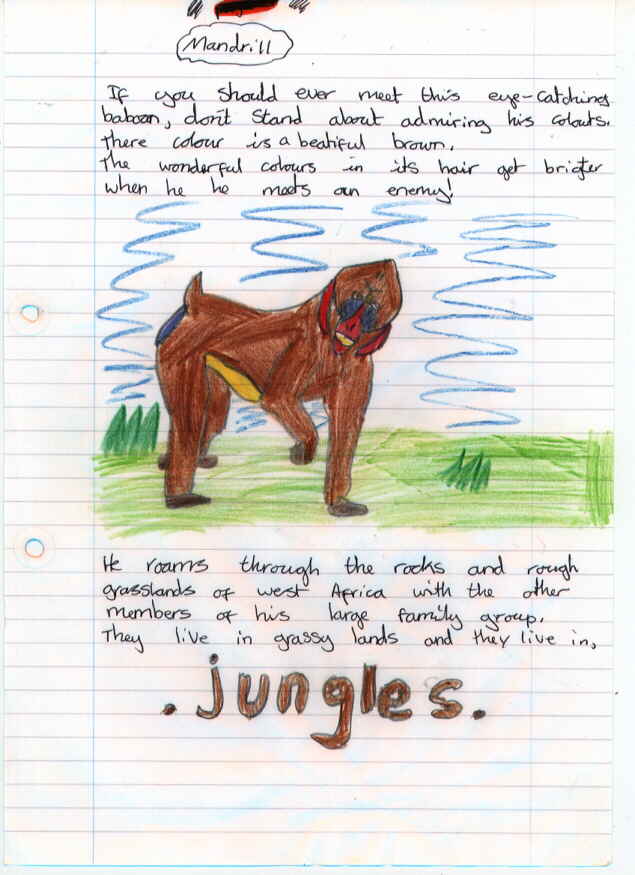 Mandrill
If you should ever meet this eye-catching
baboon, don't stand about admiring his colours.
there colour is a beatiful brown.
The wonderful colours in its hair get brigter
when he he meets an enemy!
He roams through the rocks and rough
grasslands of west Africa with the other
members of his large family group.
They live in grassy lands and they live in,
.jungles.